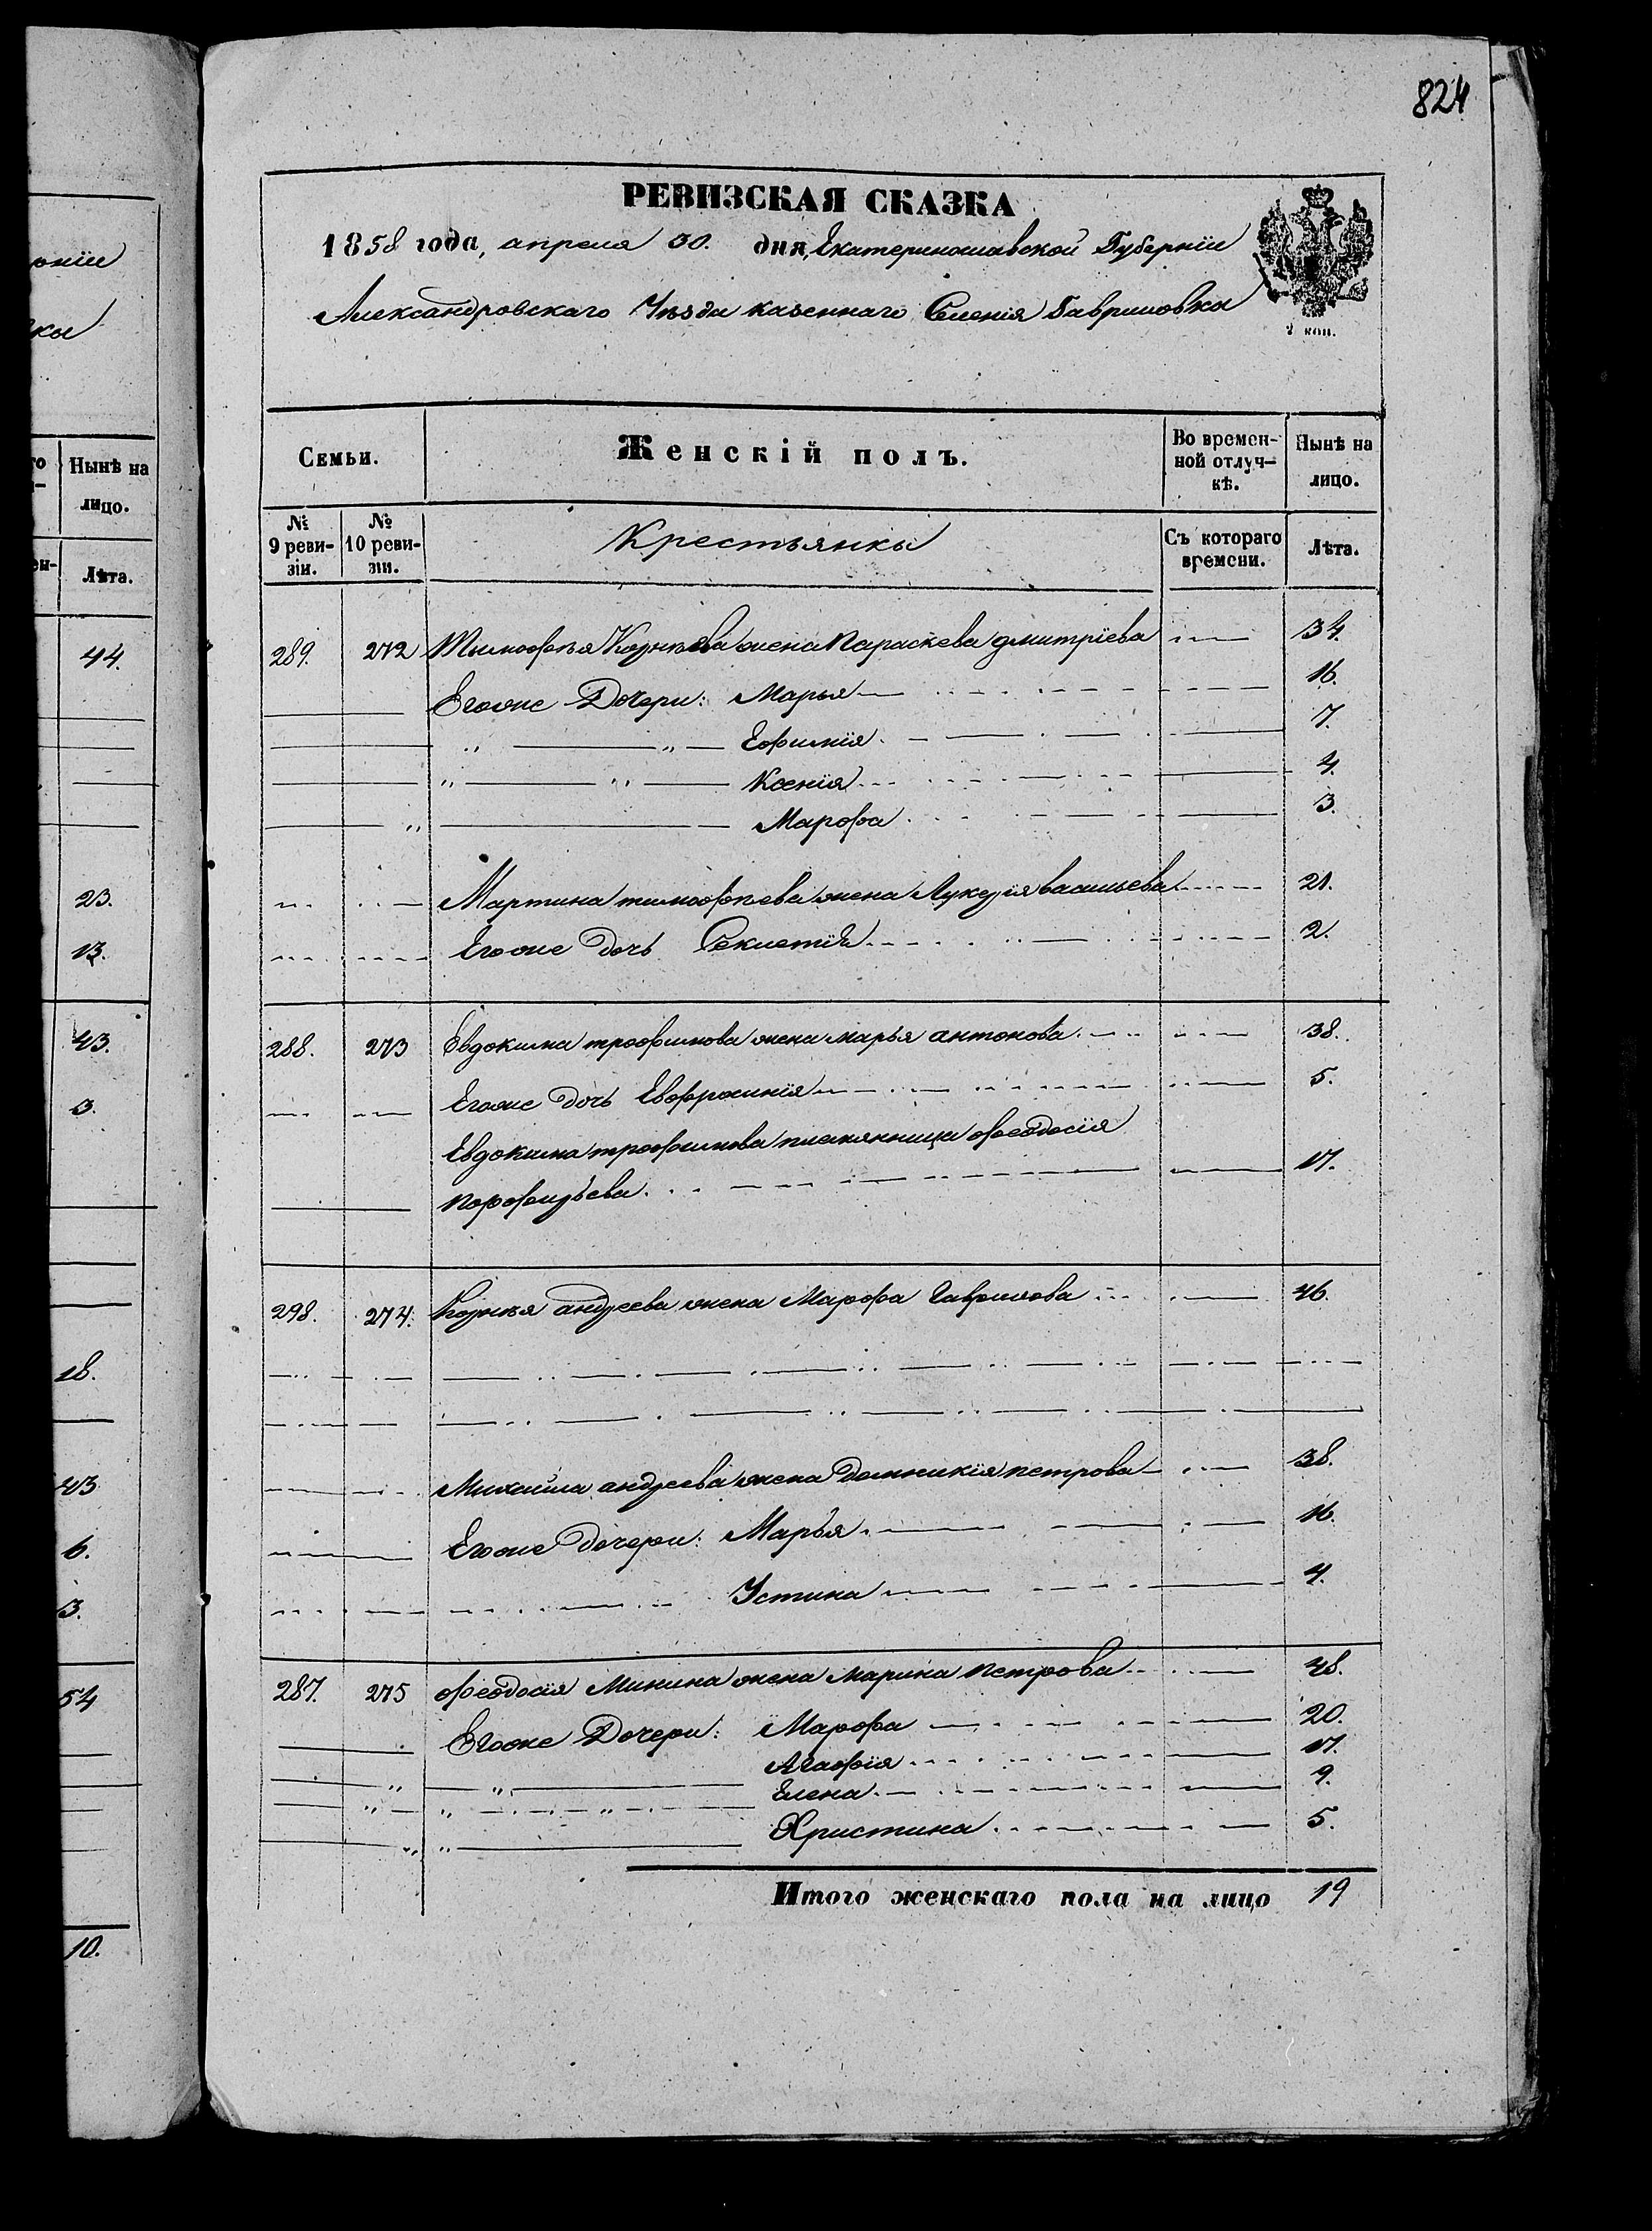 рніи
ка
го
Нынѣ на
лицо.
ен-
Лѣта.
44.
23.
13.
43.
3.
18.
43
6.
3.
54
10.
824
РЕВИЗСКАЯ СКАЗКА
1858 года, апреля 30. дня, Екатеринославской Губерніи
Александровскаго Уѣзда казеннаго Селенія Гавриловка
2 коп.
Семьи. Женскій полъ. Во времен- Нынѣ на
ной отлуч- лицо.
кѣ.
№ № Крестьянки Съ котораго Лѣта.
9 реви- 10 реви- времени.
зіи. зіи.
289. 272 Тимофѣя Корнѣева жена Параскева Дмитріева 34.
Егоже Дочери: Марья 16.
" " Ефимія 7.
" " Ксенія 4.
" Марфа 3.
Мартина тимофѣева жена Лукерія васильева 21.
Егоже дочь Секлетія 2.
288. 273 Евдокима трофимова жена марья антонова. 38.
Егоже дочь Евфросинія 5.
Евдокима трофимова племянница феодосія
порфирьева. 17.
298. 274. Корнѣя андреева жена Марфа Гаврилова 46.
Михаила андреева жена Домникія петрова 38.
Егоже дочери: Марья. 16.
Устина 4.
287. 275 феодосія Минина жена марина петрова 48.
Егоже Дочери: Марфа 20.
" " Агафія 17.
" " " Елена. 9.
" " Христина. 5.
Итого женскаго пола на лицо 19